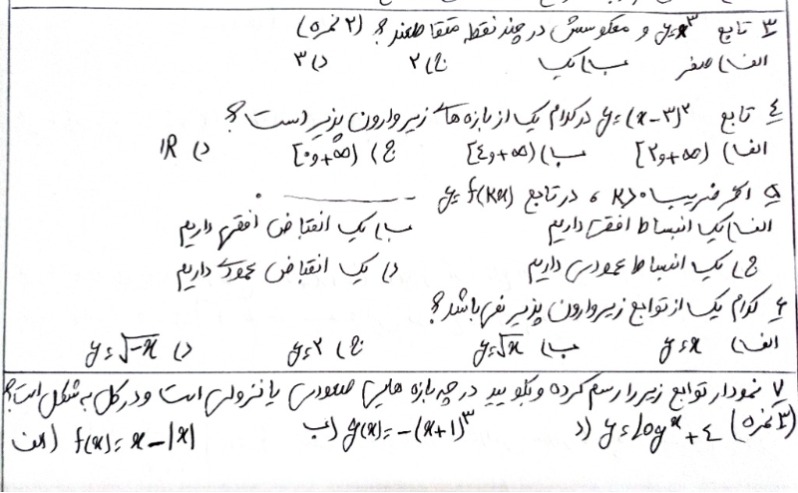 ۳ تابع y=x³ و معکوسش در چند نقطه متقاطعند؟ (۲ نمره)
الف) صفر ب) یک ج) ۲ د) ۳
٤ تابع y=(x-۳)² در کدام یک از بازه های زیر وارون پذیر است؟
الف) [۲و+∞) ب) [٤و+∞) ج) [۰و+∞) د) IR
۵ اگر ضریب K>۰ ، در تابع y=f(Kx) ............
الف) یک انبساط افقی داریم ب) یک انقباض افقی داریم
ج) یک انبساط عمودی داریم د) یک انقباض عمودی داریم
۶ کدام یک از توابع زیر وارون پذیر نمی باشد؟
الف) y=x ب) y=√x ج) y=۲ د) y=√-x
۷ نمودار توابع زیر را رسم کرده و بگویید در چه بازه هایی صعودی یا نزولی است و در کل به شکل است؟
الف) f(x)=x-|x| ب) g(x)=-(x+1)³ د) y=Log x + ٤ (۳ نمره)